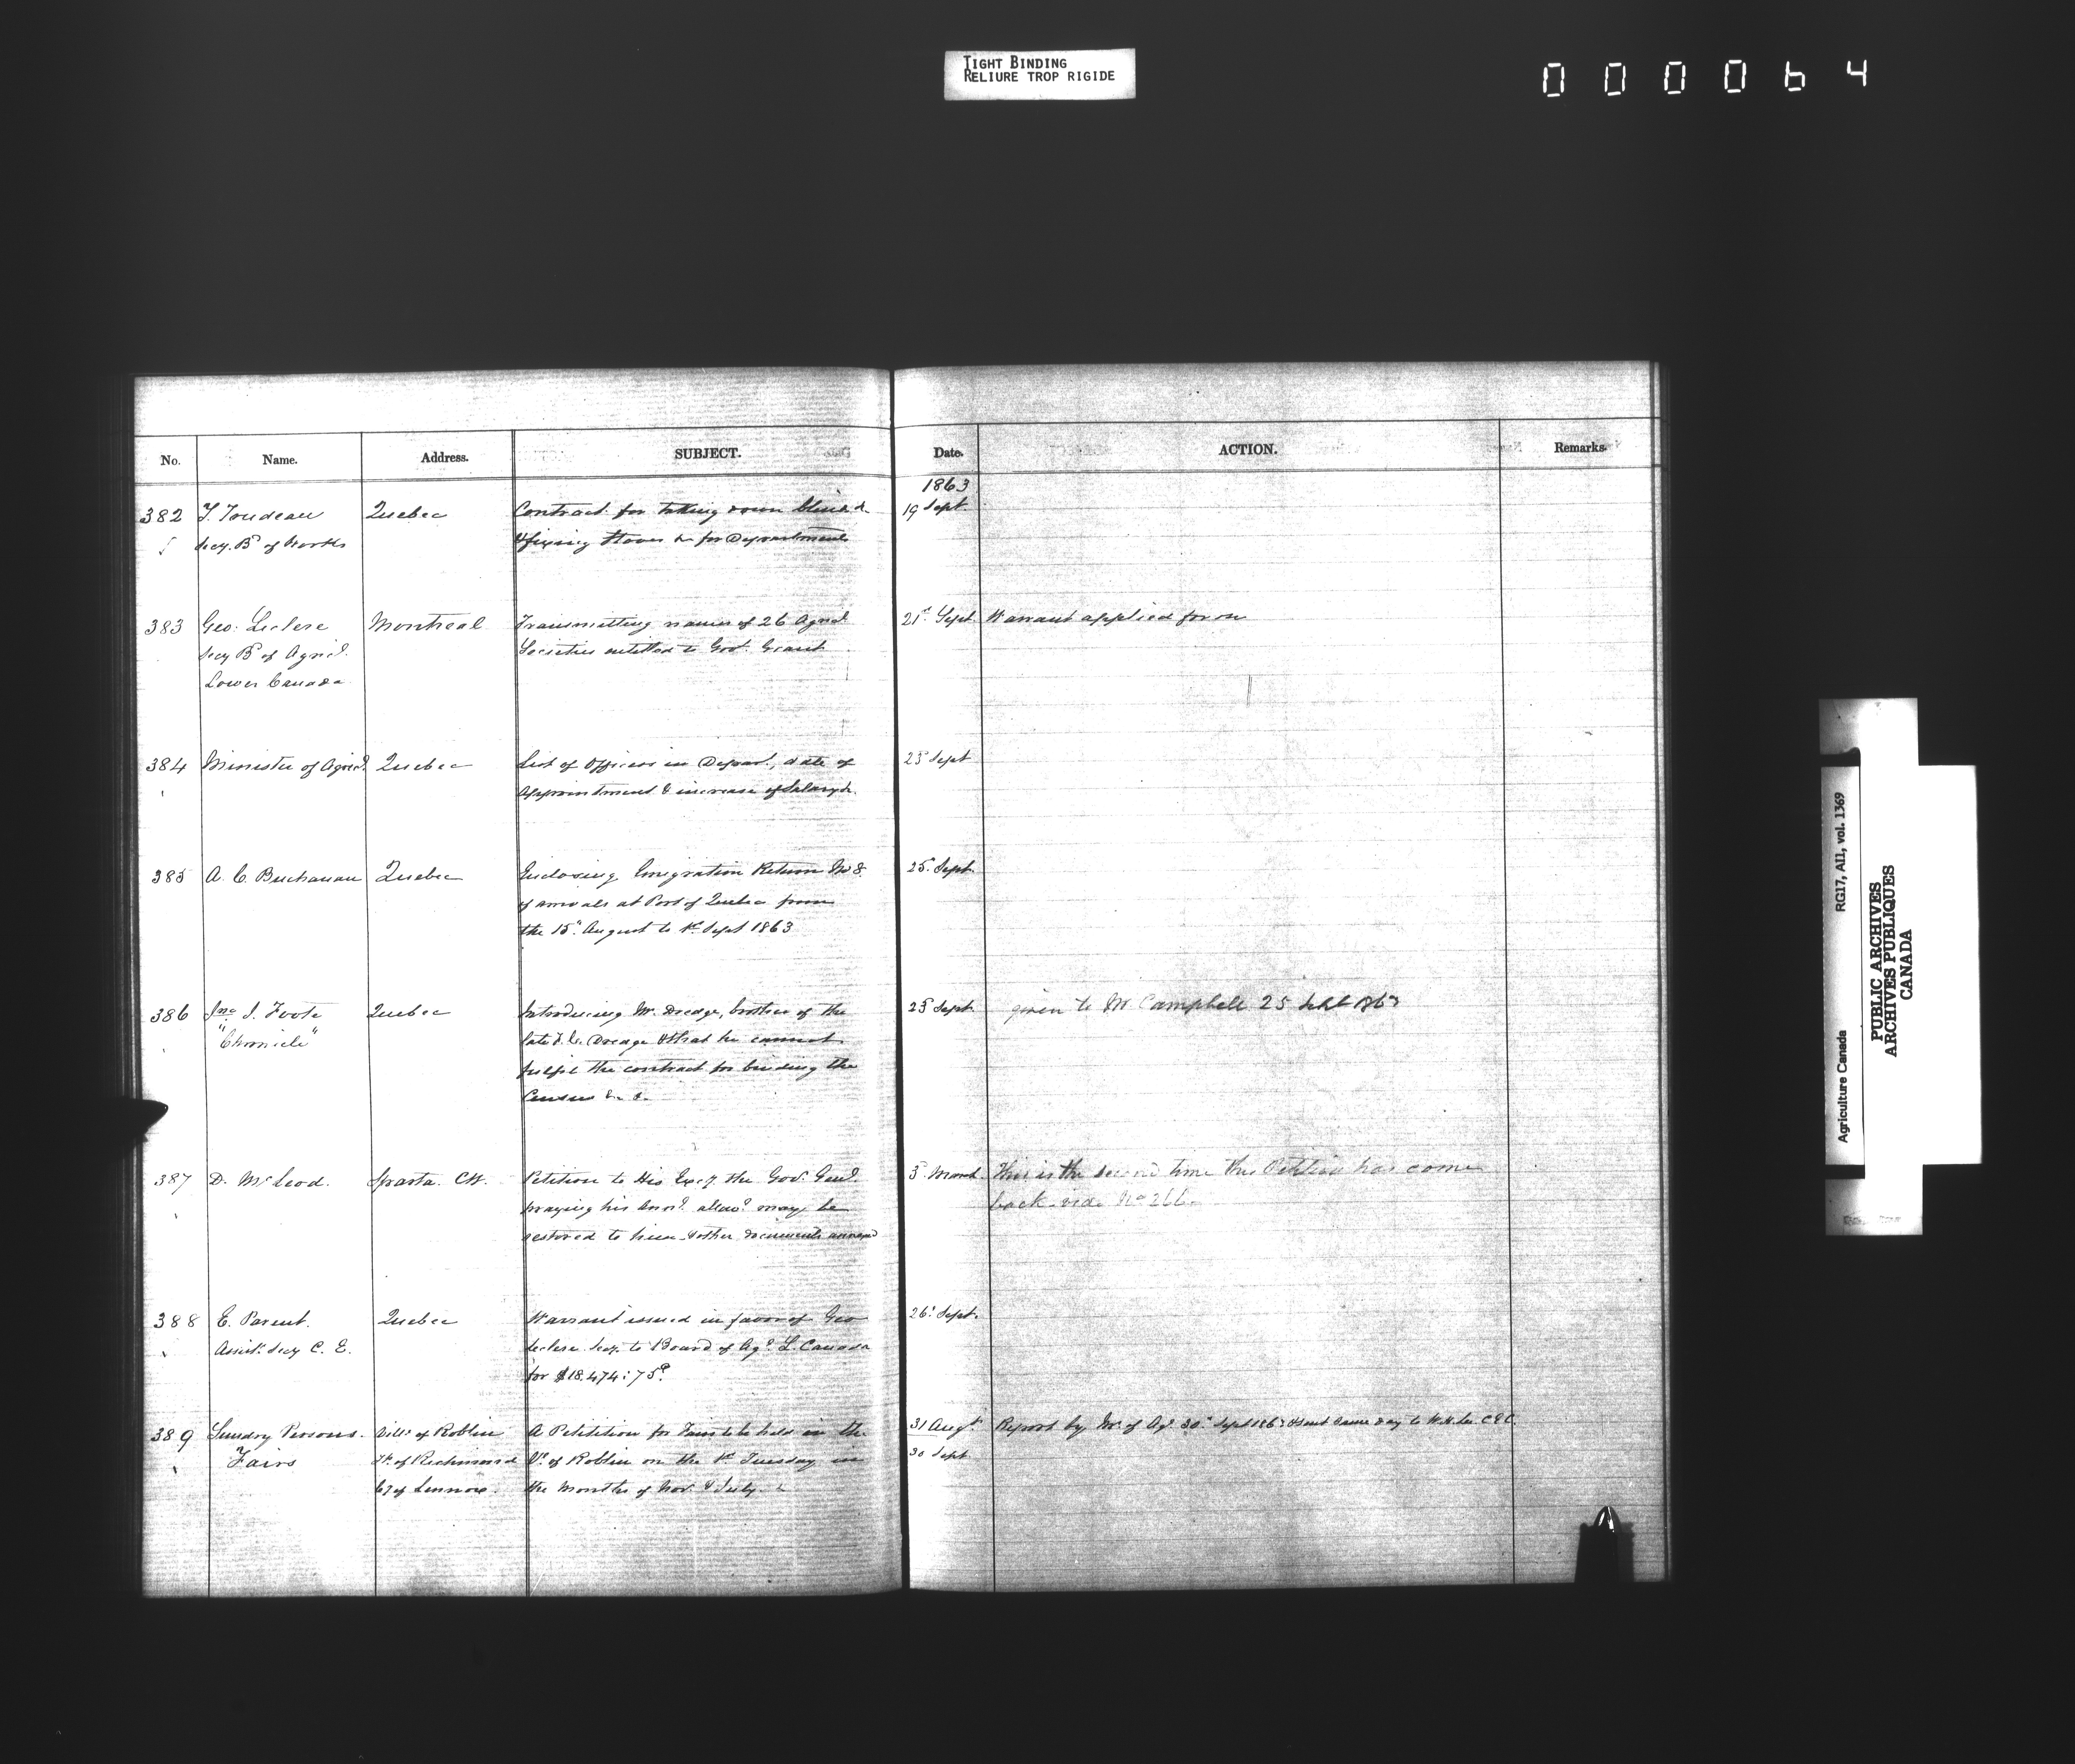 TIGHT BINDING
RELIURE TROP RIGIDE
000064
No. Name. Address. SUBJECT. Date. ACTION. Remarks.
1863
382 T. Trudeau Quebec Contract for taking down blinds 19 Sept.
Secy. Bd of Works & fixing Stoves &c for Departments
383 Geo. Leclere Montreal Transmitting names of 26 Agricl 21st Sept Warrant applied for on
Secy Bd of Agricl. Societies entitled to Govt. Grant
Lower Canada
384 Minister of Agricl. Quebec List of Officers in Depart., date of 25 Sept
Appointment & increase of Salary &c.
385 A. C. Buchanan Quebec Enclosing Emigration Return No 8 25th Sept.
of arrivals at Port of Quebec from
the 15th August to 1st Sept 1863
386 Jno. J. Foote Quebec Introducing Mr. Dredge, brother of the 25 Sept. given to Mr Campbell 25 Sept 1863
"Chronicle" late Dredge & that he cannot
fulfil the contract for binding the
Census &c &.
387 D. McLeod. Sparta. CW. Petition to His Excy. the Gov. Genl. 3d March. This is the second time this Petition has come
praying his annl. allowe. may be back vide No 266.
restored to him & other documents annexed
388 E. Parent. Quebec Warrant issued in favor of Geo 26th Sept.
Assist. Secy C. E. Leclere Secy. to Board of Agr. L. Canada
for $18.474:75c.
389 Sundry Persons. Villa of Roblin A Petition for Fairs to be held in the 31 Augt. Report by Mr. of Agr. 30th Sept 1863 & sent same day to W. H. Lee C E C.
Fairs Tp. of Richmond Va. of Roblin on the 1st Tuesday in 30 Sept.
Cy of Lennox. the months of Nov. & July.
Agriculture Canada RG17, AII, vol. 1369
PUBLIC ARCHIVES
ARCHIVES PUBLIQUES
CANADA